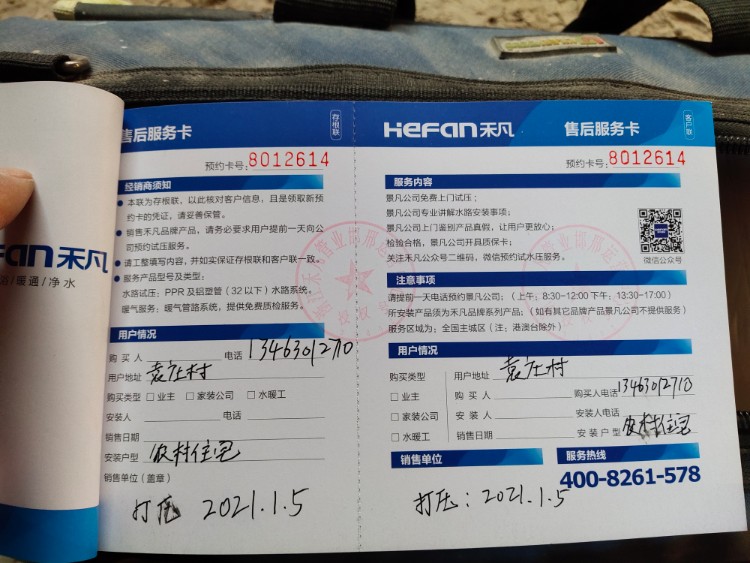 售后服务卡
存根联
预约卡号:8012614
经销商须知
本联为存根联,以此核对客户信息,且是领取新预
约卡的凭证,请妥善保管。
销售禾凡品牌产品,请务必要求用户提前一天向公
司预约试压服务。
请工整填写内容,并如实保证存根联和客户联一致。
服务产品型号及类型:
水路试压:PPR及铝塑管(32以下)水路系统。
暖气服务:暖气管路系统,提供免费质检服务。
用户情况
购买人 电话 13463012710
用户地址 袁庄村
购买类型 □业主 □家装公司 □水暖工
安装人 电话
销售日期
安装户型 农村住宅
销售单位(盖章)
打压 2021.1.5
Fan禾凡
/暖通/净水
HeFan禾凡 售后服务卡
客户联
预约卡号:8012614
服务内容
景凡公司免费上门试压;
景凡公司专业讲解水路安装事项;
景凡公司上门鉴别产品真假,让用户更放心;
检验合格,景凡公司开具质保卡;
关注禾凡公司二维码,微信预约试水压服务。
微信公众号
注意事项
请提前一天电话预约景凡公司:(上午:8:30-12:00下午:13:30-17:00)
所安装产品须为禾凡品牌系列产品;(如有其它品牌产品景凡公司不提供服务)
服务区域为:全国主城区(注:港澳台除外)
用户情况
购买类型 用户地址 袁庄村
□业主 购买人 购买人电话 13463012710
□家装公司 安装人 安装人电话
□水暖工 销售日期 安装户型 农村住宅
销售单位 服务热线
400-8261-578
打压:2021.1.5